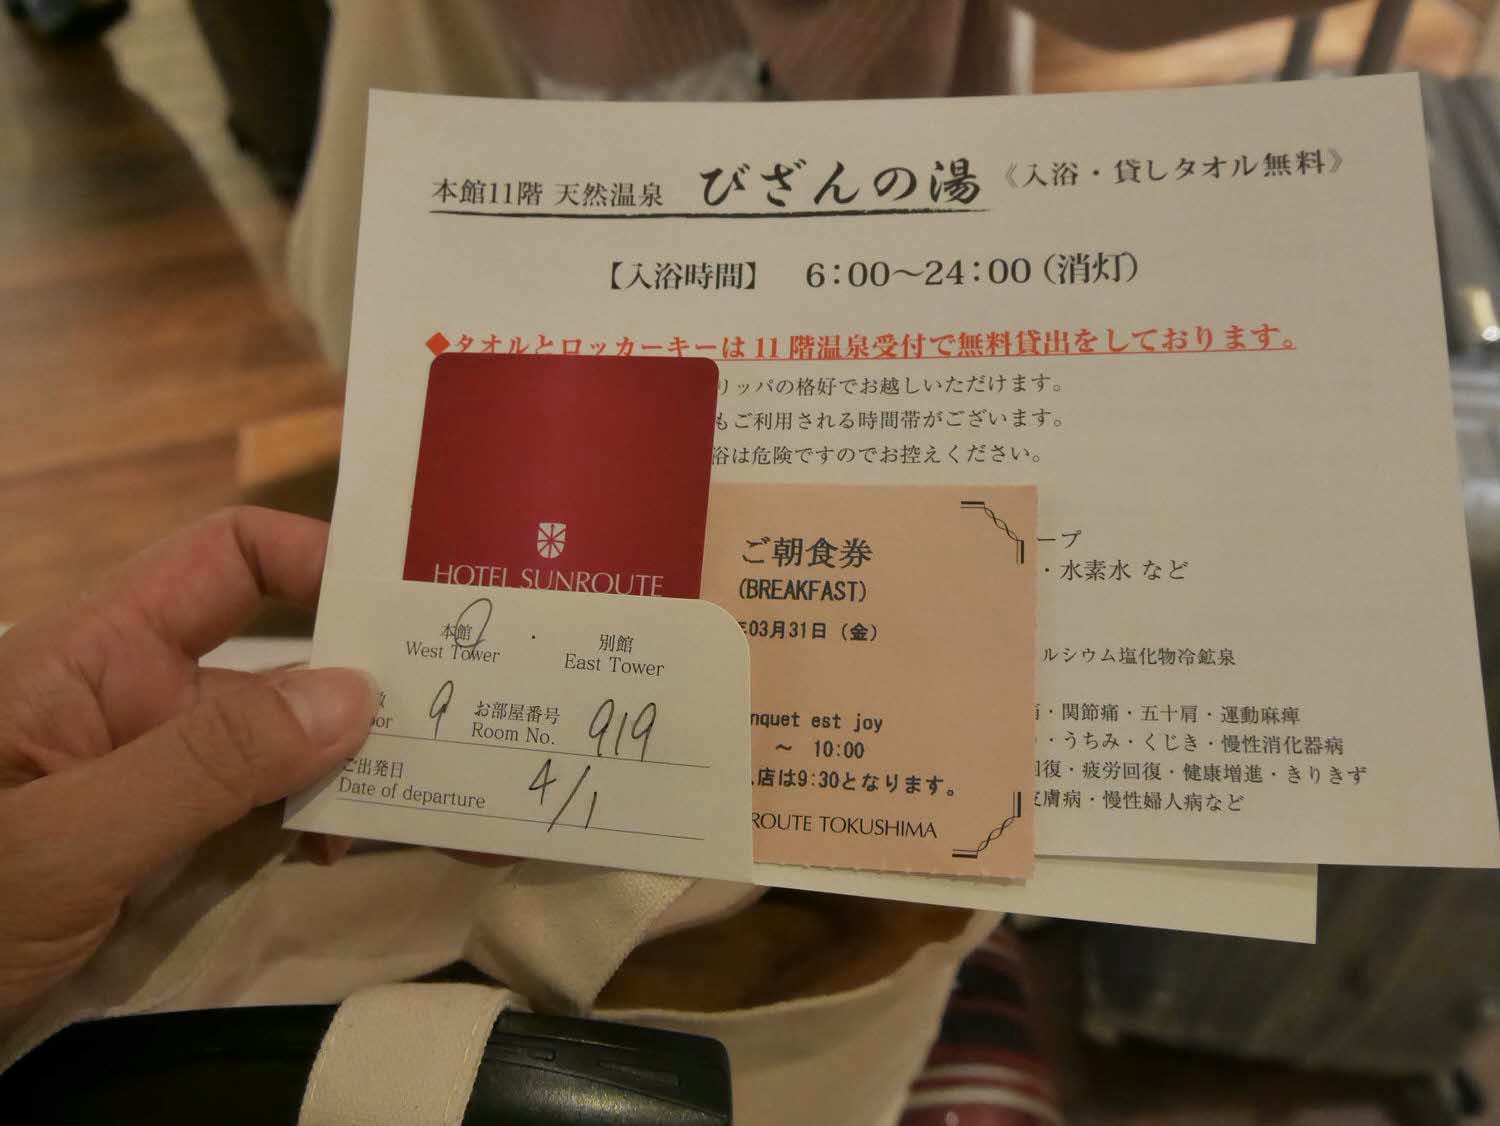 本館11階 天然温泉 びざんの湯 《入浴・貸しタオル無料》
【入浴時間】 6:00～24:00(消灯)
◆タオルとロッカーキーは11階温泉受付で無料貸出をしております。
リッパの格好でお越しいただけます。
もご利用される時間帯がございます。
浴は危険ですのでお控えください。
ープ
・水素水 など
ルシウム塩化物冷鉱泉
・関節痛・五十肩・運動麻痺
・うちみ・くじき・慢性消化器病
回復・疲労回復・健康増進・きりきず
皮膚病・慢性婦人病など
HOTEL SUNROUTE
ご朝食券
(BREAKFAST)
03月31日(金)
nquet est joy
～ 10:00
店は9:30となります。
ROUTE TOKUSHIMA
本館 ・ 別館
West Tower East Tower
9 お部屋番号 919
Room No.
ご出発日 4/1
Date of departure